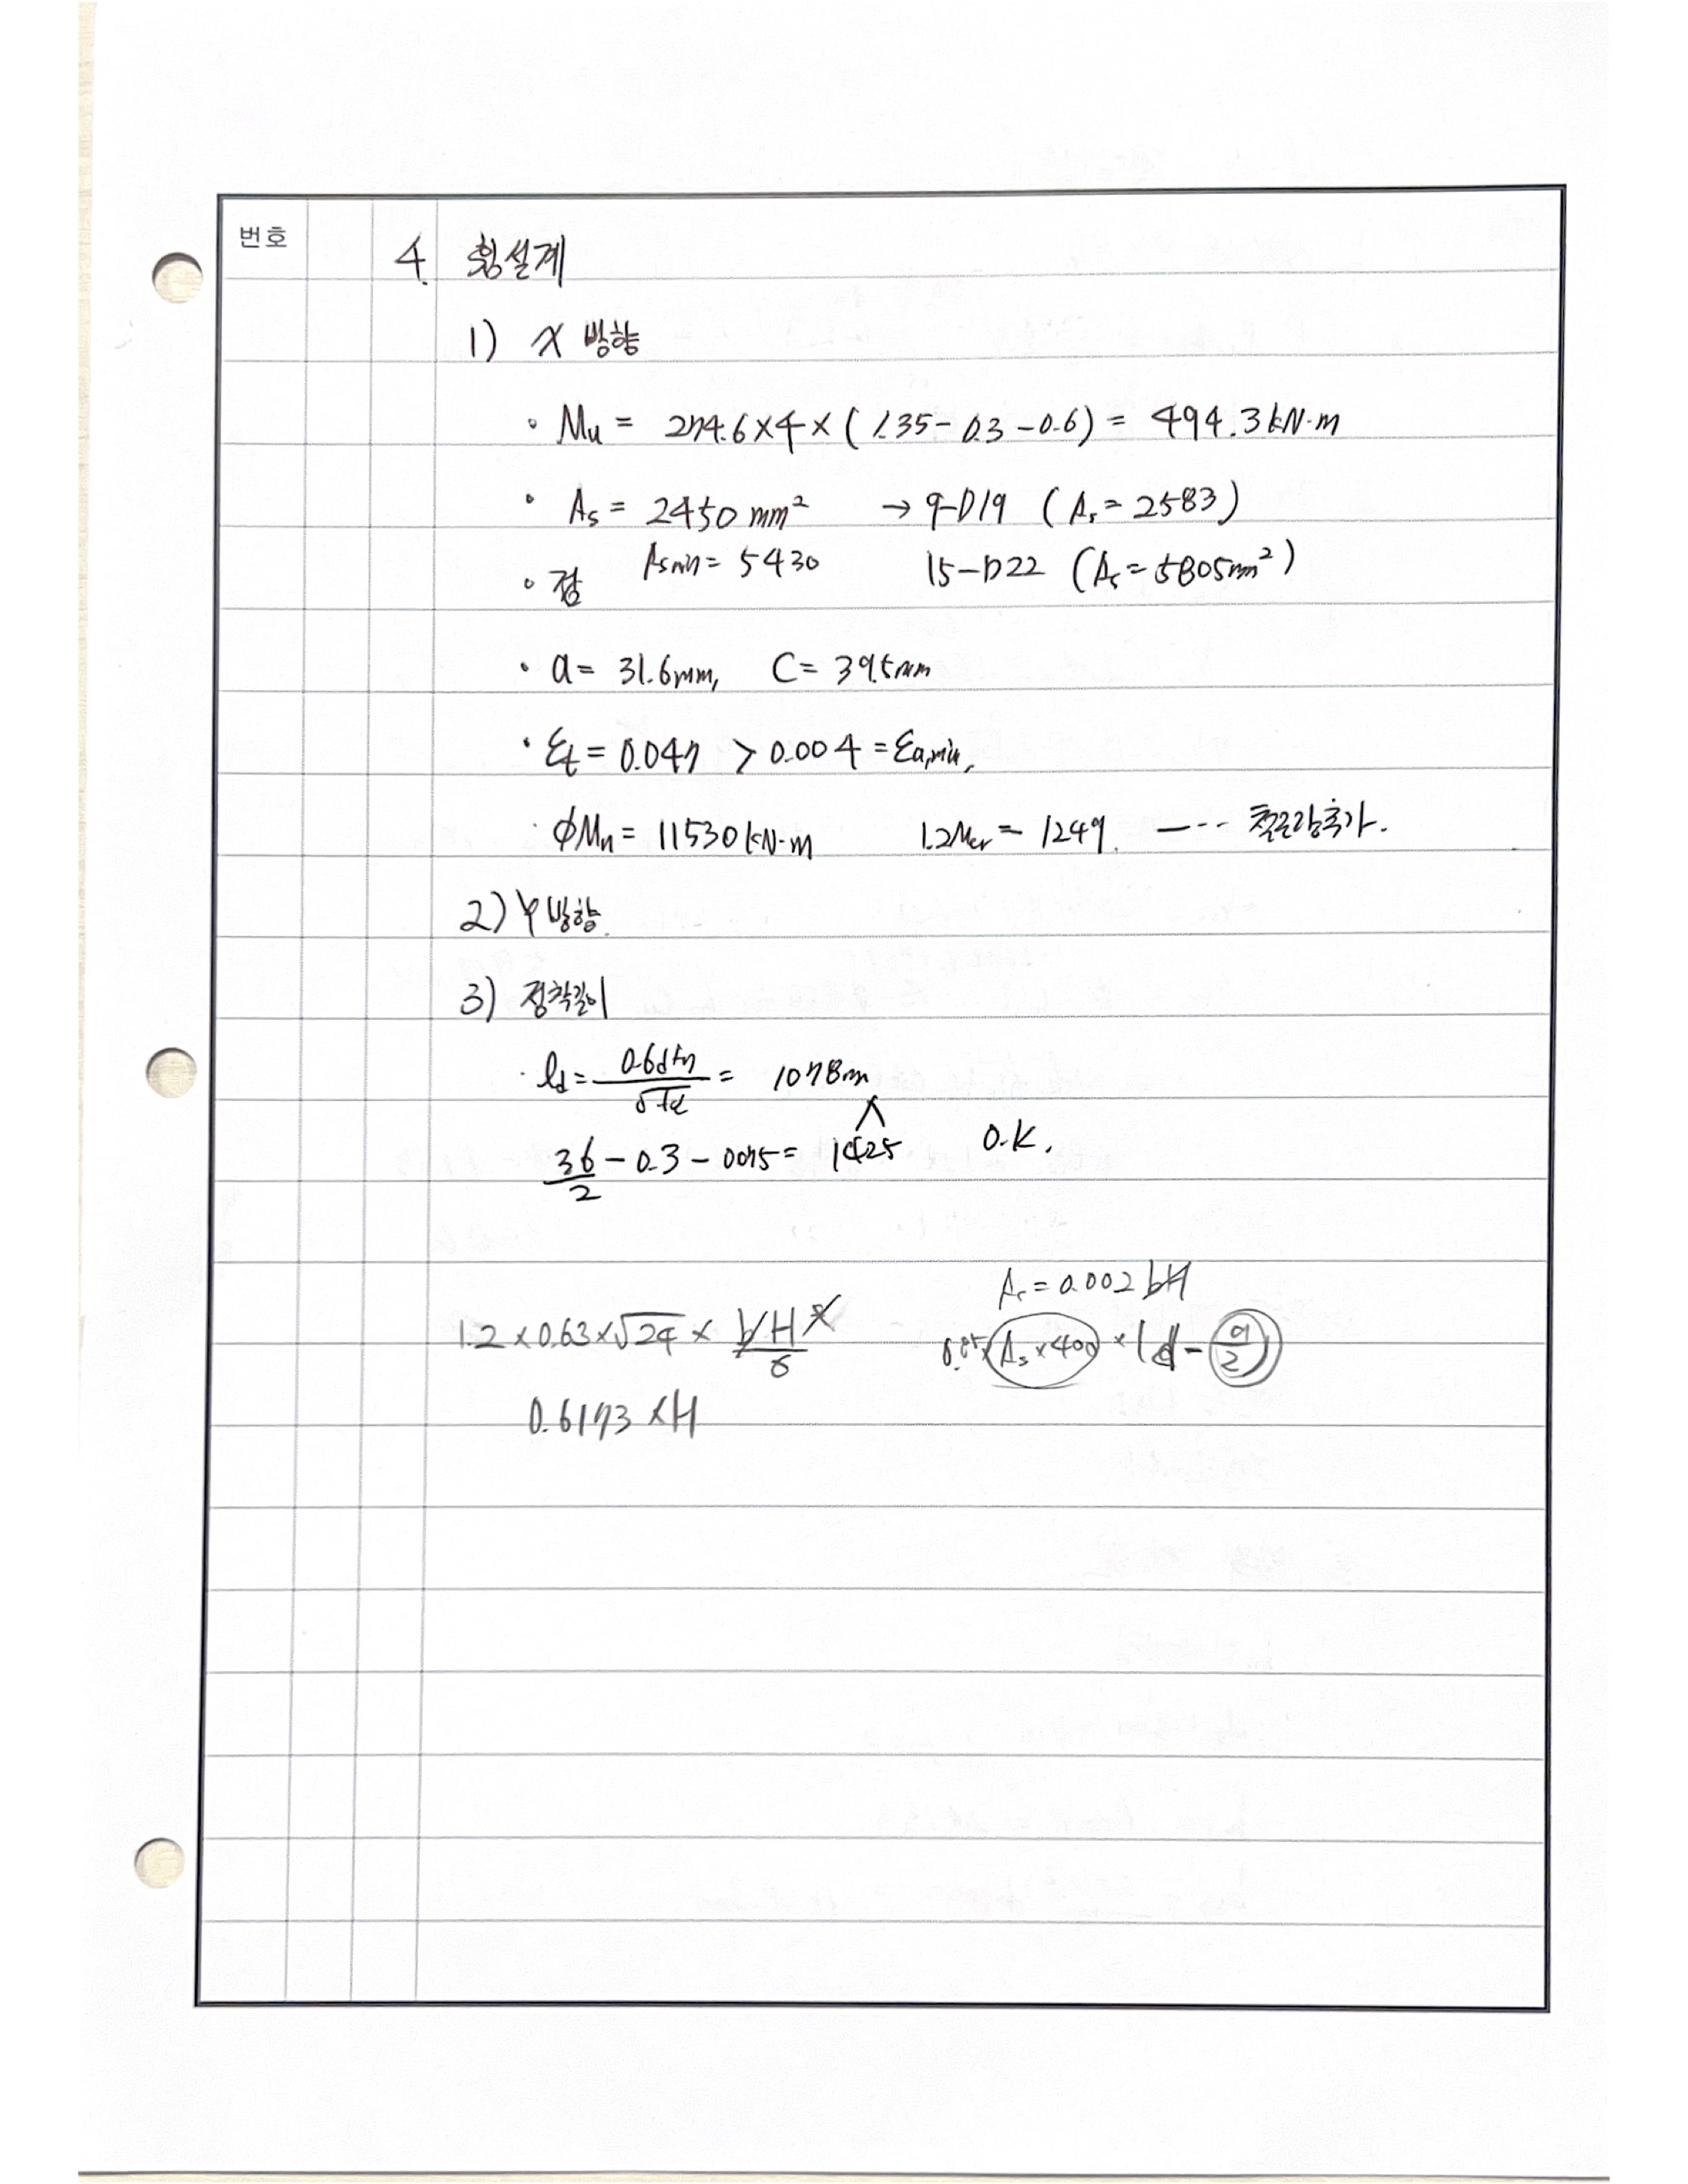 번호
4. 휨설계
1) X 방향
• Mu = 274.6×4×(1.35-0.3-0.6) = 494.3 kN·m
• As = 2450 mm² → 9-D19 (As = 2583)
Asmin = 5430 15-D22 (As = 5805mm²)
• 검
• a = 31.6mm, C = 39.5mm
• εt = 0.047 > 0.004 = εa,min,
• φMn = 11530 kN·m 1.2Mcr = 1249. --- 철근량추가.
2) Y 방향.
3) 정착길이
• ld = 0.6dfy/√fck = 1078mm
∧
3.6/2 - 0.3 - 0.075 = 1425 O.K.
As = 0.002 bH
1.2×0.63×√24 × bH²/6 0.85×As×400 × (d - a/2)
0.6173 × H